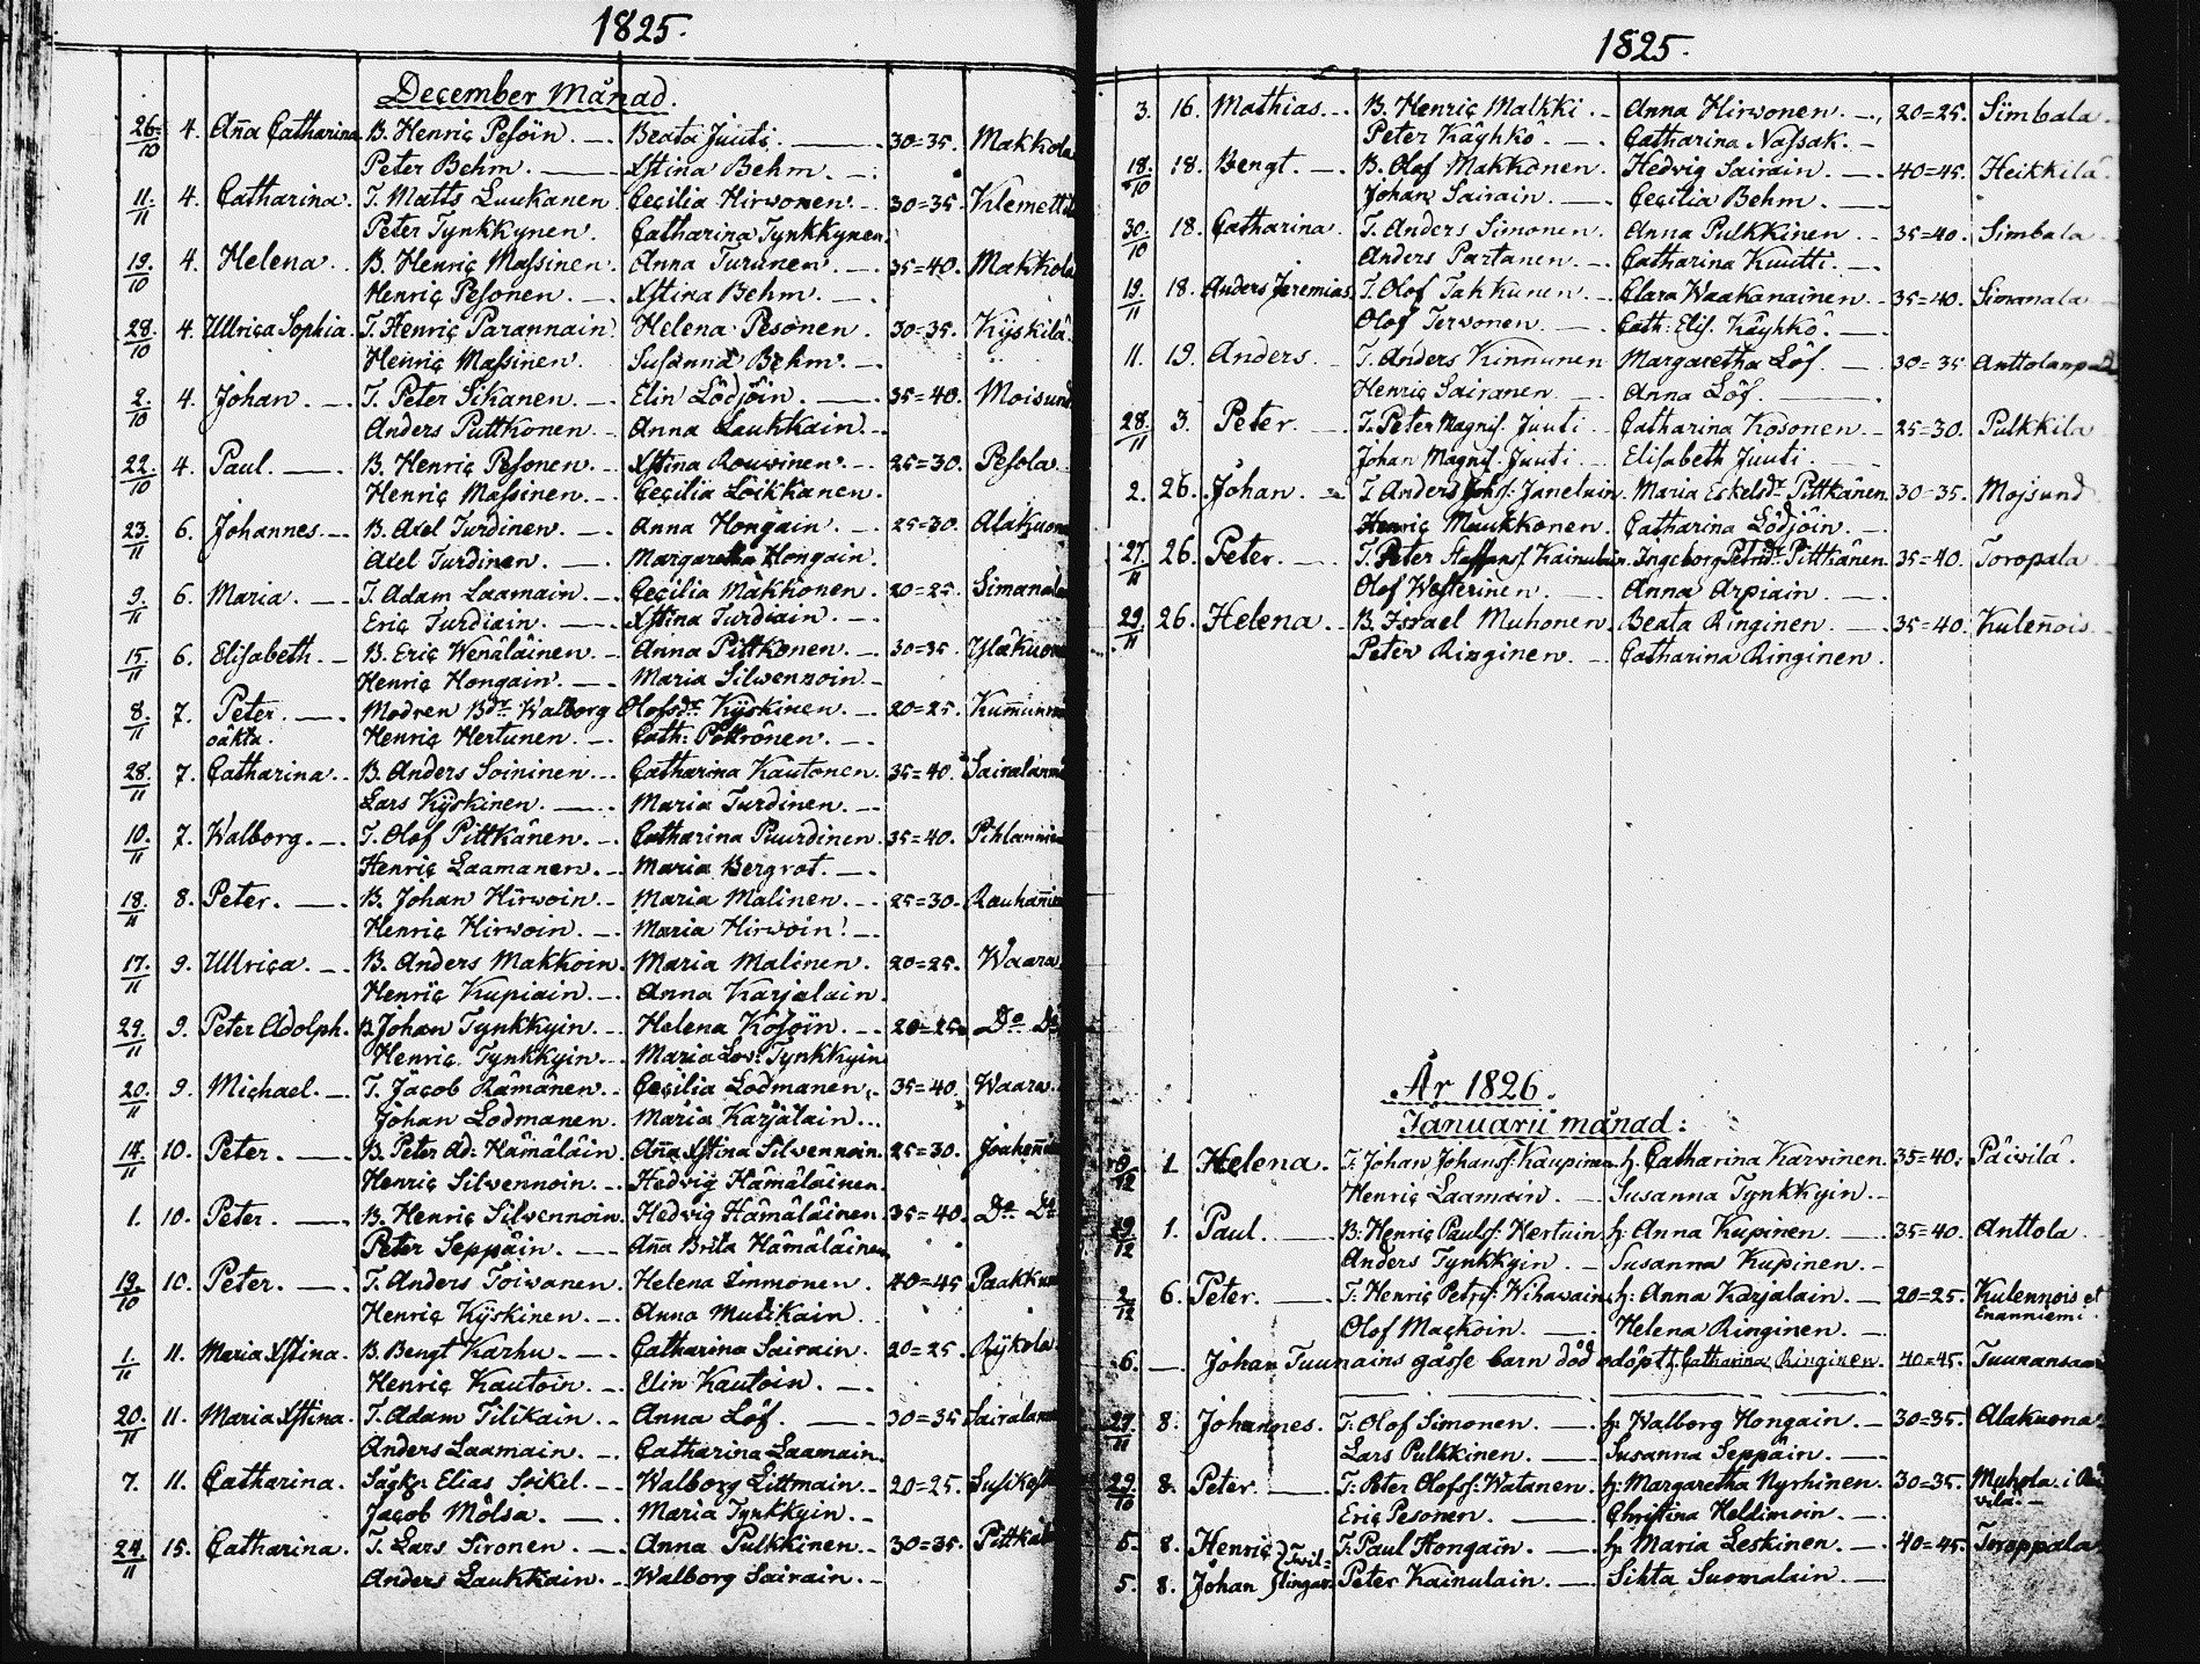 1825.
December Månad.
26./10 4. Aña Catharina B. Henric Pesöin. Beata Juuti. 30=35. Makkola
Peter Behm. Xstina Behm.
11./11 4. Catharina. T. Matts Luukanen Cecilia Hirwonen. 30=35. Klemetti
Peter Tynkkynen. Catharina Tynkkynen.
19./10 4. Helena. B. Henric Massinen. Anna Turunen. 35=40. Makkola
Henric Pesonen. Xstina Behm.
28./10 4. Ullrica Sophia. T. Henric Parannain. Helena Pesonen. 30=35. Kÿskilä.
Henric Massinen. Susanna Behm.
2./10 4. Johan. T. Peter Sikanen. Elin Lödjöin. 35=40. Moisund
Anders Puttkonen. Anna Laukkain.
22./10 4. Paul. B. Henric Pesonen. Xstina Rouvinen. 25=30. Pesola.
Henric Massinen. Cecilia Loikkanen.
23./11 6. Johannes. B. Axel Turdinen. Anna Hongain. 25=30. Alakuon
Axel Turdinen. Margaretha Hongain.
9./11 6. Maria. T. Adam Laamain. Cecilia Makkonen. 20=25. Simanala
Eric Turdiain. Xstina Turdiain.
15./11 6. Elisabeth. B. Eric Wenäläinen. Anna Pittkonen. 30=35. Yläkuon
Henric Hongain. Maria Silwennoin.
8./11 7. Peter. Modren Bdr. Walborg Olofsdr. Kÿskinen. 20=25. Kum̄unn
oäkta. Henric Hertunen. Cath: Pöllrönen.
28./11 7. Catharina. B. Anders Soininen. Catharina Kautonen. 35=40. Sairalanm
Lars Kÿskinen. Maria Turdinen.
10./11 7. Walborg. T. Olof Pittkänen. Catharina Puurdinen. 35=40. Pihlannie
Henric Laamanen. Maria Bergrot.
18./11 8. Peter. B. Johan Hirwoin. Maria Malinen. 25=30. Rauhañi
Henric Hirwoin. Maria Hirwoin.
17./11 9. Ullrica. B. Anders Makkoin. Maria Malinen. 20=25. Waara.
Henric Kupiain. Anna Karjalain.
29./11 9. Peter Adolph. B. Johan Tynkkyin. Helena Kosoin. 20=25. Do Do
Henric Tynkkyin. Maria Lov: Tynkkyin
20./11 9. Michael. T. Jacob Rämänen. Cecilia Lodmanen. 35=40. Waara.
Johan Lodmanen. Maria Karjalain.
14./11 10. Peter. B. Peter Ad: Hämäläin. Aña Xstina Silvennoin. 25=30. Jouheñi
Henric Silvennoin. Hedvig Hämäläinen.
1. 10. Peter. B. Henric Silvennoin. Hedvig Hämäläinen. 35=40. Do Do
Peter Seppäin. Aña Brita Hämäläinen
19./10 10. Peter. T. Anders Toiwanen. Helena Immonen. 40=45 Paakkun
Henric Kÿskinen. Anna Mutikain.
1./11 11. Maria Xstina. B. Bengt Karhu. Catharina Sairain. 20=25. Rÿkola
Henric Kautoin. Elin Kautoin.
20./11 11. Maria Xstina. T. Adam Tilikain. Anna Löf. 30=35 Sairalann
Anders Laamain. Catharina Laamain.
7. 11. Catharina. Sågkn Elias Soikel. Walborg Littmain. 20=25. Susikos
Jacob Mölsa. Maria Tynkkyin.
24./11 15. Catharina. T. Lars Sironen. Anna Pulkkinen. 30=35. Pittkä
Anders Laukkain. Walborg Sairain.
1825.
3. 16. Mathias. B. Henric Malkki. Anna Hirwonen. 20=25. Simbala.
Peter Käyhkö. Catharina Nassak.
18./10 18. Bengt. B. Olof Makkonen. Hedvig Sairain. 40=45. Heikkilä.
Johan Sairain. Cecilia Behm.
30./10 18. Catharina. T. Anders Simonen. Anna Pulkkinen. 35=40. Simbala
Anders Partanen. Catharina Kuutti.
19./11 18. Anders Jeremias. T. Olof Tahkunen. Clara Waakanainen. 35=40. Simanala
Olof Terwonen. Cath: Elis. Käyhkö.
11. 19. Anders. T. Anders Kinnunen Margaretha Löf. 30=35 Anttolanp
Henric Sairanen. Anna Löf.
28./11 3. Peter. T. Peter Magnis. Juuti. Catharina Kosonen. 25=30. Pulkkila
Johan Magnis. Juuti. Elisabeth Juuti.
2. 26. Johan. T. Anders Johs: Janeluin. Maria Eskelsdr. Pittkänen. 30=35. Mojsund
Henric Muukkonen. Catharina Lödjöin.
27./11 26. Peter. T. Peter Staffans. Kainulain. Ingeborg Petrdr. Pittkänen. 35=40. Toropala
Olof Westerinen. Anna Arpiain.
29./11 26. Helena. B. Israel Muhonen. Beata Ringinen. 35=40. Kuleñois
Peter Ringinen. Catharina Ringinen.
År 1826.
Januarii månad:
/12 1. Helena. T. Johan Johanss: Kaupinen h. Catharina Karvinen. 35=40. Päivilä.
Henric Laamain. Susanna Tynkkyin.
29/12 1. Paul. B: Henric Paulss: Hertuin h. Anna Kupinen. 35=40. Anttola
Anders Tynkkyin. Susanna Kupinen.
2./12 6. Peter. T: Henric Petrs: Wihawain. h: Anna Karjalain. 20=25. Kulennois et
Enanniemi.
Olof Mackoin. Helena Ringinen.
6. Johan Tuunains gåsse barn död odöpt h. Catharina Ringinen. 40=45. Tuunansaa
27./11 8. Johannes. T: Olof Simonen. h: Walborg Hongain. 30=35. Alakuona
Lars Pulkkinen. Susanna Seppäin.
29./10 8. Peter. T: Peter Olofs: Watanen. h: Margaretha Nyrhinen. 30=35. Muhola i
vilä.
Eric Pesonen. Christina Heldimoin.
5. 8. Henric } Twil= T: Paul Hongain. h: Maria Leskinen. 40=45. Toroppala
5. 8. Johan } lingar. Peter Kainulain. Sikta Suomalain.